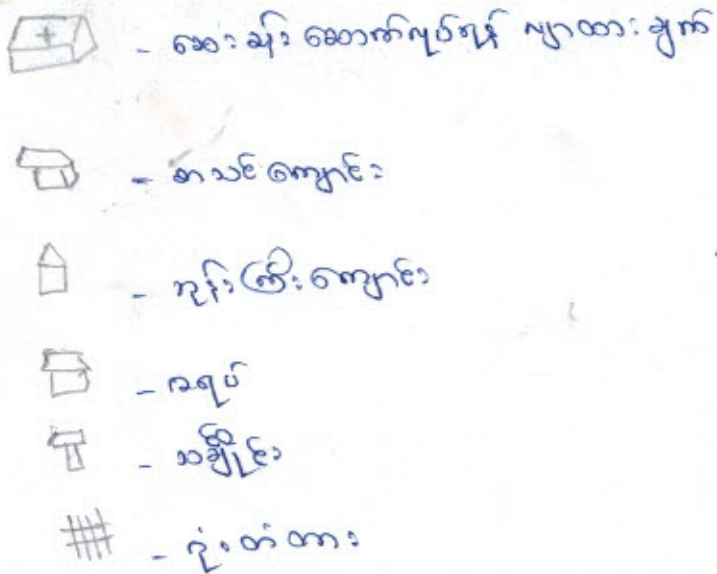 - ဆေးခန်း ဆောက်လုပ်ရန် လျာထားချက်
- စာသင်ကျောင်း
- ဘုန်းကြီးကျောင်း
- ဇရပ်
- သချိုင်း
- ဂုံးတံတား